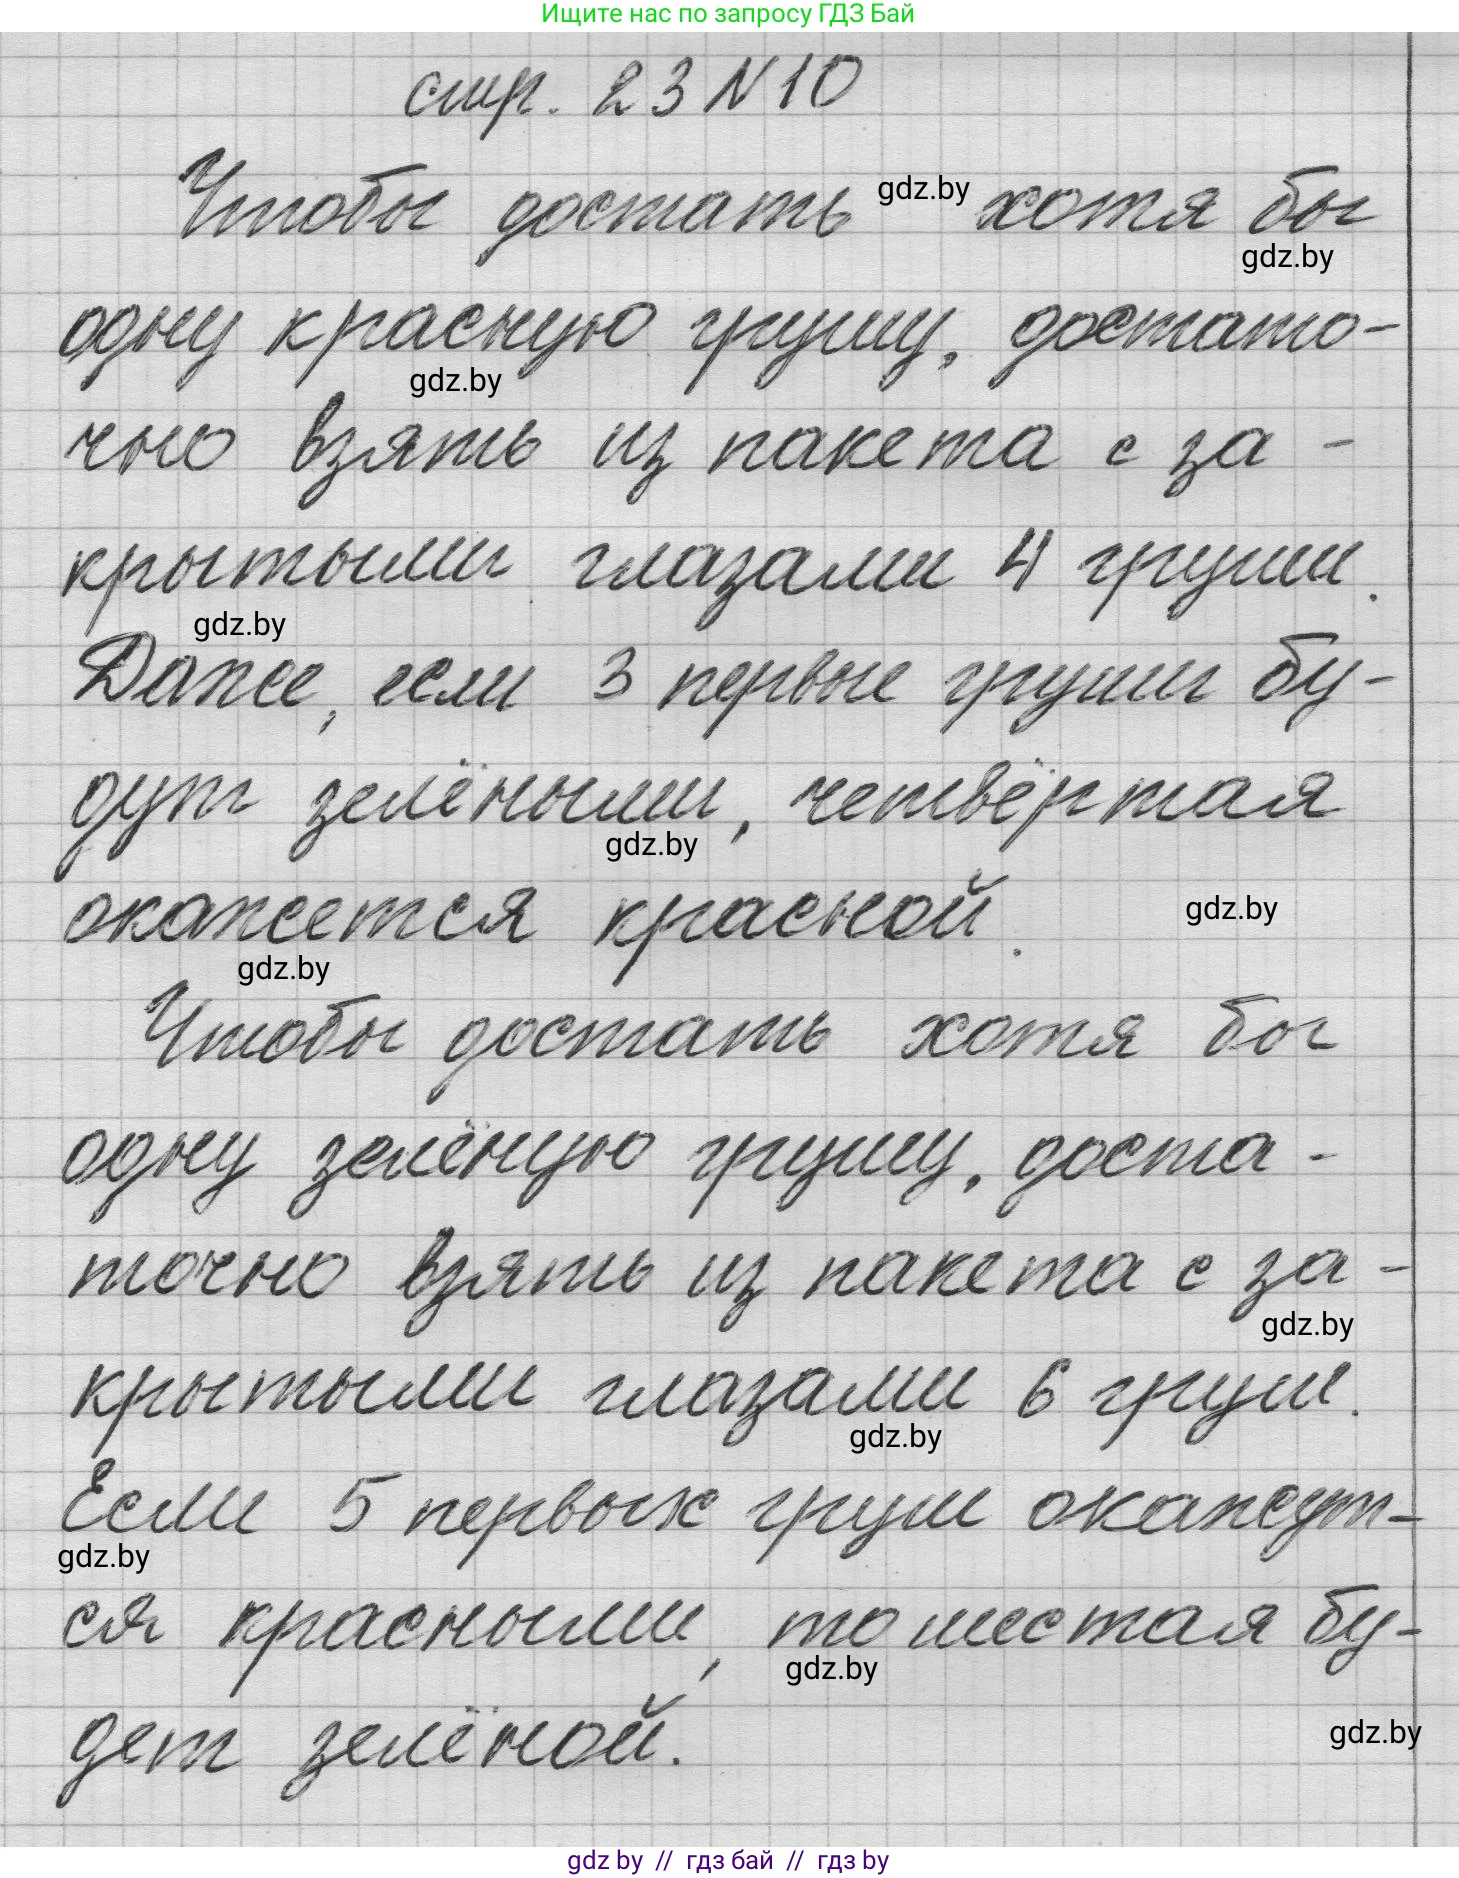 Ищите нас по запросу ГДЗ Бай
стр. 23 N 10
Чтобы достать gdz.by хотя бы
gdz.by
одну красную грушу, достато-
gdz.by
чно взять из пакета с за -
крытыми глазами 4 груши.
gdz.by
Даже, если 3 первые груши бу-
дут зелёными, четвёртая
gdz.by
окажется красной. gdz.by
gdz.by
Чтобы достать хотя бы
одну зелёную грушу, доста -
точно взять из пакета с за -
gdz.by
крытыми глазами 6 груш.
gdz.by
Если 5 первых груш окажут-
gdz.by
ся красными, то шестая бу-
gdz.by
дет зелёной. gdz.by
gdz by // гдз бай // гдз by